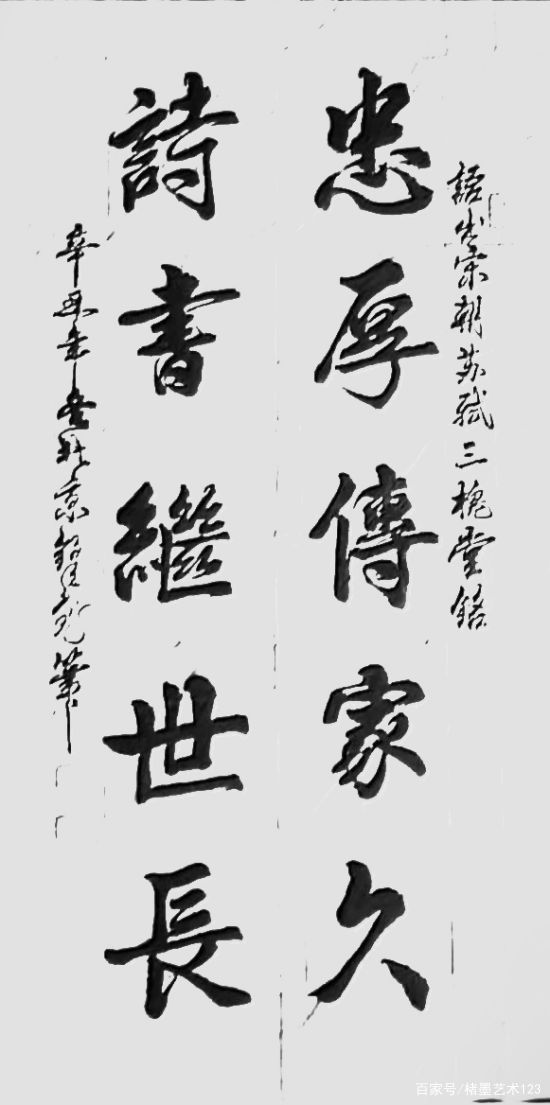 語出宋朝苏轼三槐堂銘
忠厚傳家久
詩書繼世長
辛丑年
京
筆
百家号/楮墨艺术123